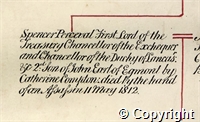 Spencer Perceval First Lord of the
Treasury Chancellor of the Exchequer
and Chancellor of the Duchy of Lancas.
2d Son of John Earl of Egmont by
Catherine Compton: died by the hand
of an Assassin 11 May 1812.